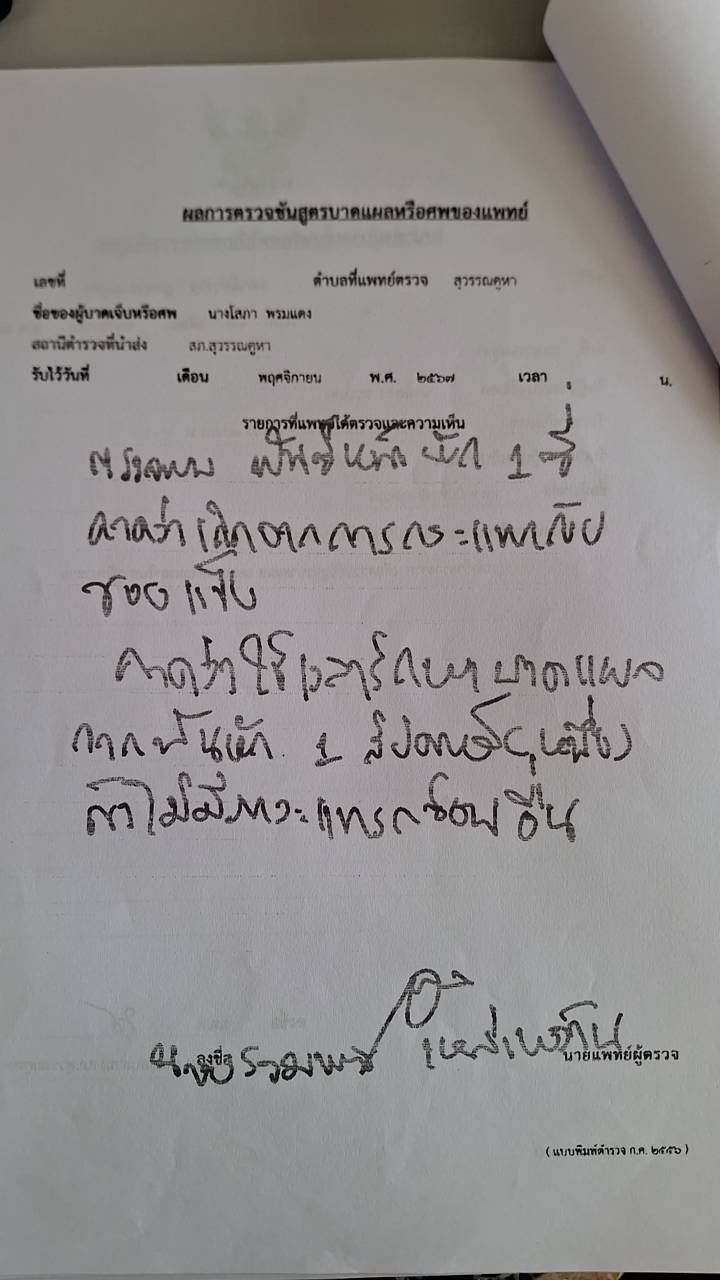 ผลการตรวจชันสูตรบาดแผลหรือศพของแพทย์
เลขที่ ตำบลที่แพทย์ตรวจ สุวรรณคูหา
ชื่อของผู้บาดเจ็บหรือศพ นางโสภา พรมแดง
สถานีตำรวจที่นำส่ง สภ.สุวรรณคูหา
รับไว้วันที่ เดือน พฤศจิกายน พ.ศ. ๒๕๖๗ เวลา : น.
รายการที่แพทย์ได้ตรวจและความเห็น
ตรวจพบ ฟันซี่หน้าหัก 1 ซี่
คาดว่าเกิดจากการกระแทกกับ
ของแข็ง
คาดว่าใช้เวลารักษาบาดแผล
จากฟันหัก 1 สัปดาห์
ถ้าไม่มีภาวะแทรกซ้อนอื่น
ลงชื่อ นายแพทย์ผู้ตรวจ
( แบบพิมพ์ตำรวจ ก.ค. ๒๕๕๖ )